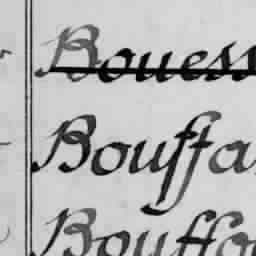 Bouess
Bouffa
Bouffo